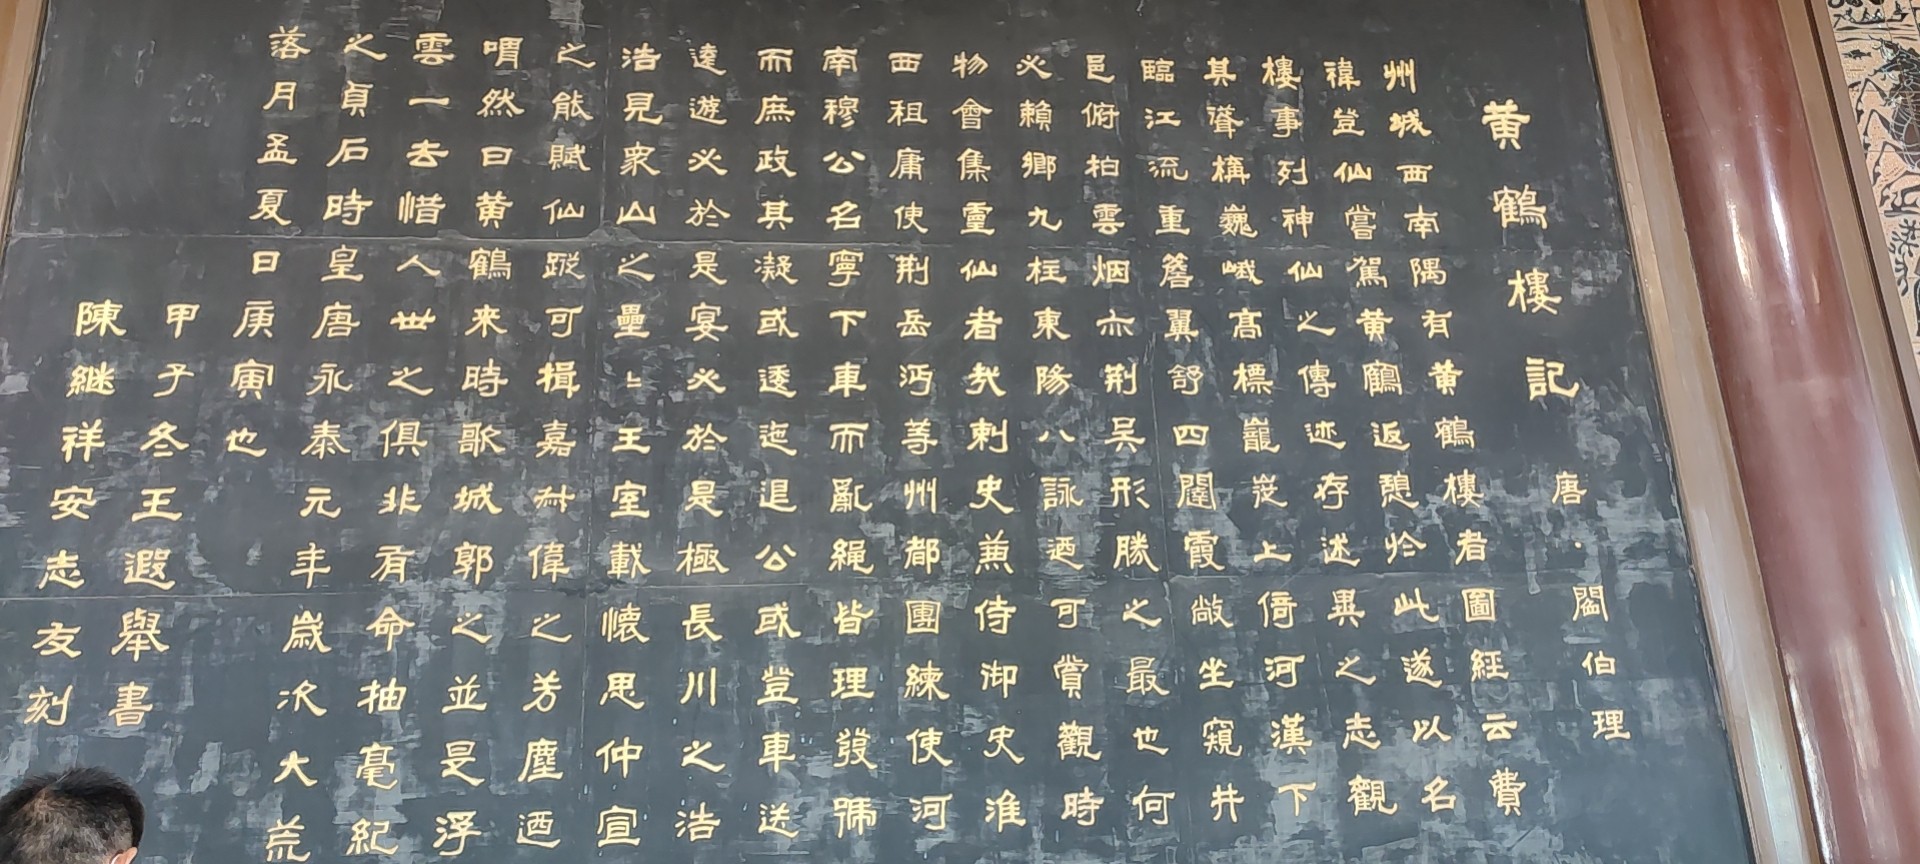 黄鶴樓記 唐·閻伯理
州城西南隅有黄鶴樓者圖經云費
禕登仙嘗駕黄鶴返憩於此遂以名
樓事列神仙之傳迹存述異之志觀
其聳構巍峨高標巃嵸上倚河漢下
臨江流重簷翼舒四闥霞敞坐窺井
邑俯拍雲烟亦荆吳形勝之最也何
必賴鄉九柱東陽八詠迺可賞觀時
物會集靈仙者哉刺史兼侍御史淮
西租庸使荆岳沔等州都團練使河
南穆公名寧下車而亂繩皆理發號
而庶政其凝或逶迤退公或登車送
遠遊必於是宴必於是極長川之浩
浩見衆山之壘々王室載懷思仲宣
之能賦仙蹤可揖嘉叔偉之芳塵迺
喟然曰黄鶴來時歌城郭之並是浮
雲一去惜人世之俱非有命抽毫紀
之貞石時皇唐永泰元年歲次大荒
落月孟夏日庚寅也
甲子冬王遐舉書
陳継祥安志友刻